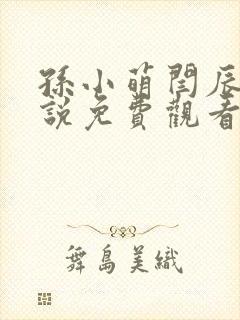 孫小萌閆辰
說免費觀看
舞島美織